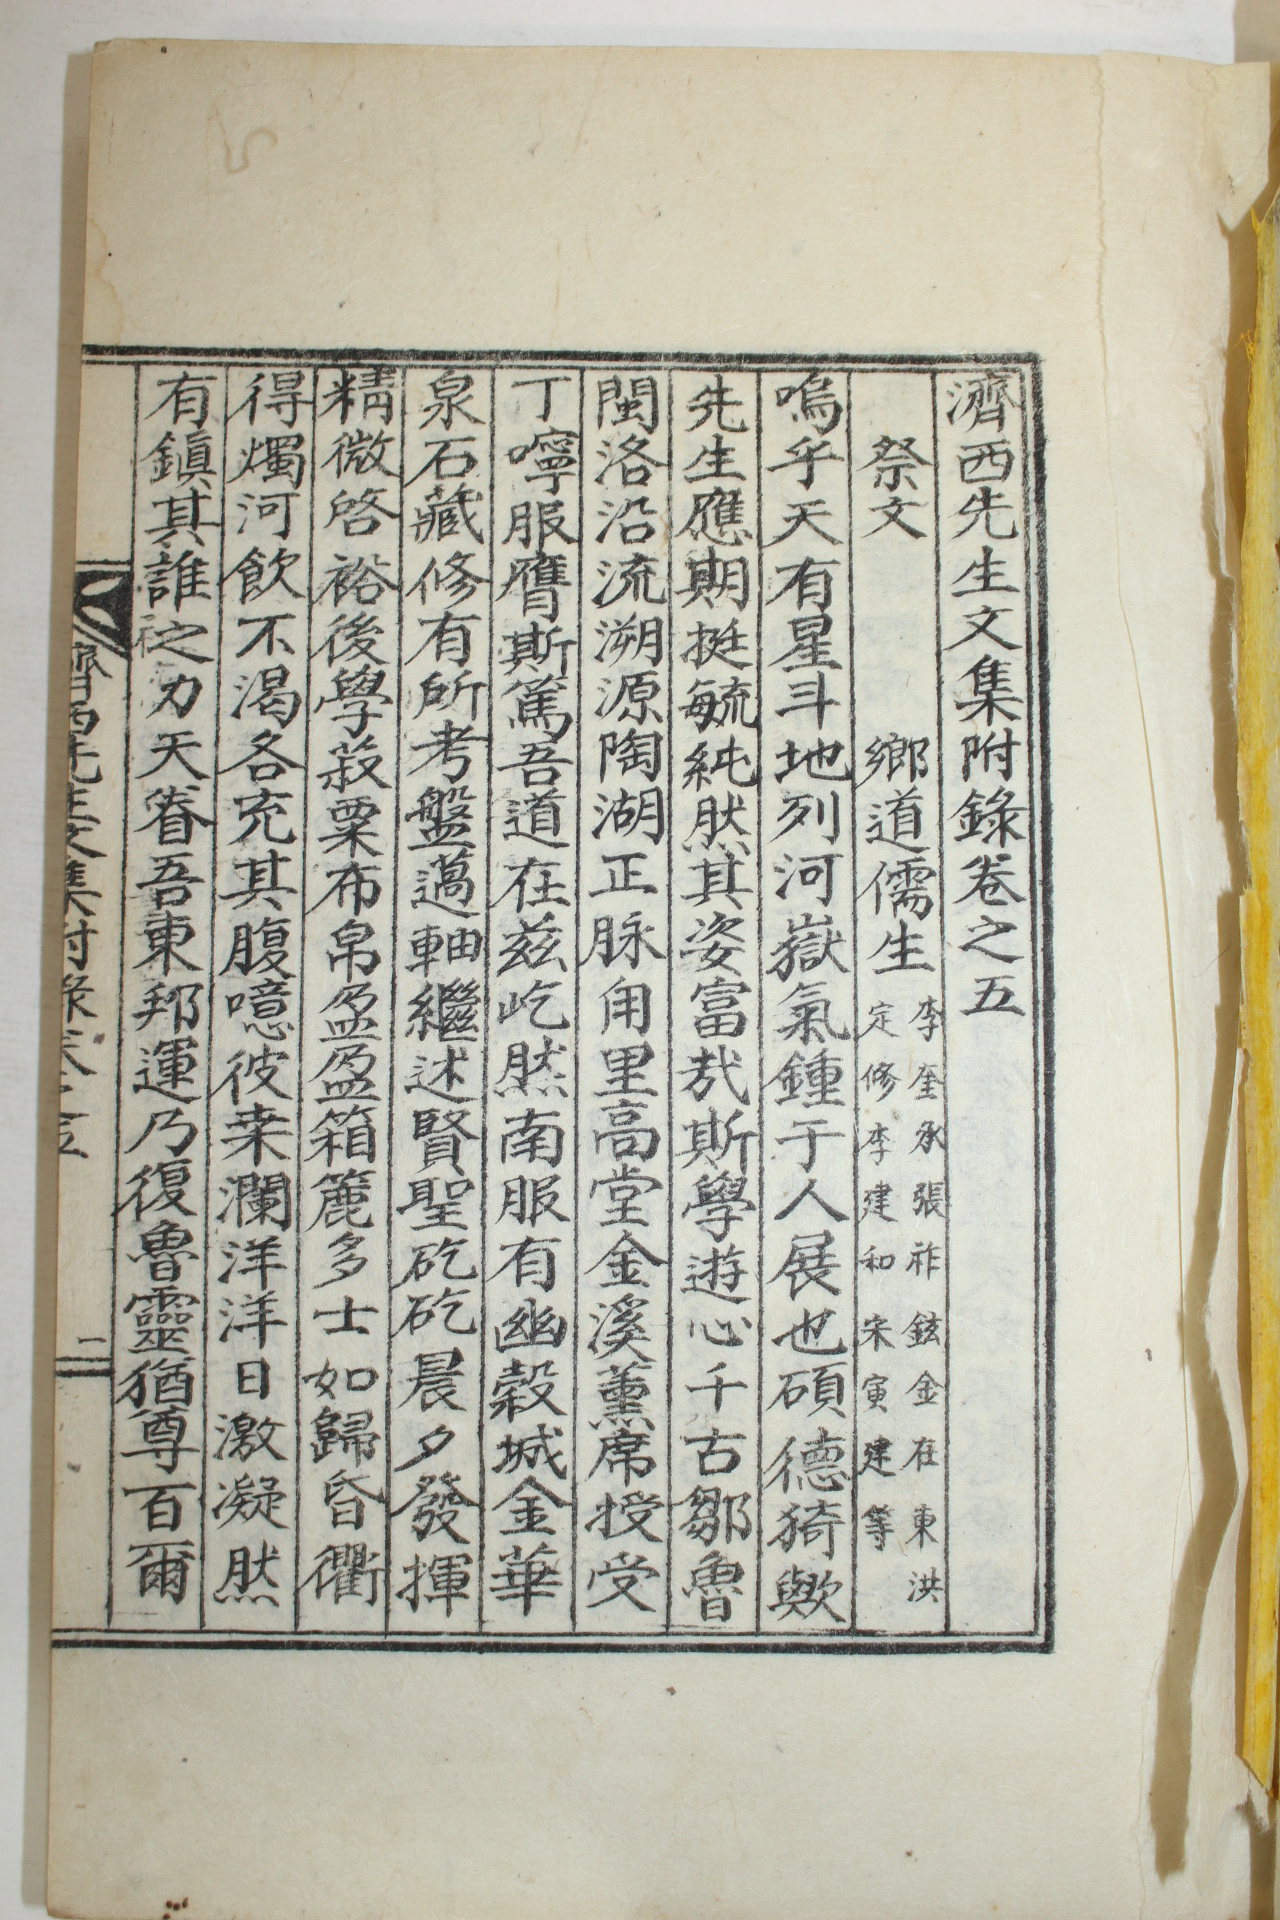 濟西先生文集附錄卷之五
祭文 鄕道儒生 李奎承張祚鉉金在東洪
定修李建和宋寅建等
嗚乎天有星斗地列河嶽氣鍾于人展也碩德猗歟
先生應期挺毓純然其姿富哉斯學遊心千古鄒魯
閩洛沿流溯源陶湖正脉甪里高堂金溪薰席授受
丁嚀服膺斯篤吾道在玆屹然南服有幽穀城金華
泉石藏修有所考盤薖軸繼述賢聖矻矻晨夕發揮
精微啓裕後學菽粟布帛盈盈箱簏多士如歸昏衢
得燭河飮不渴各充其腹噫彼桒瀾洋洋日激凝然
有鎭其誰之力天眷吾東邦運乃復魯靈猶尊百爾
濟西先生文集附錄卷之五
一